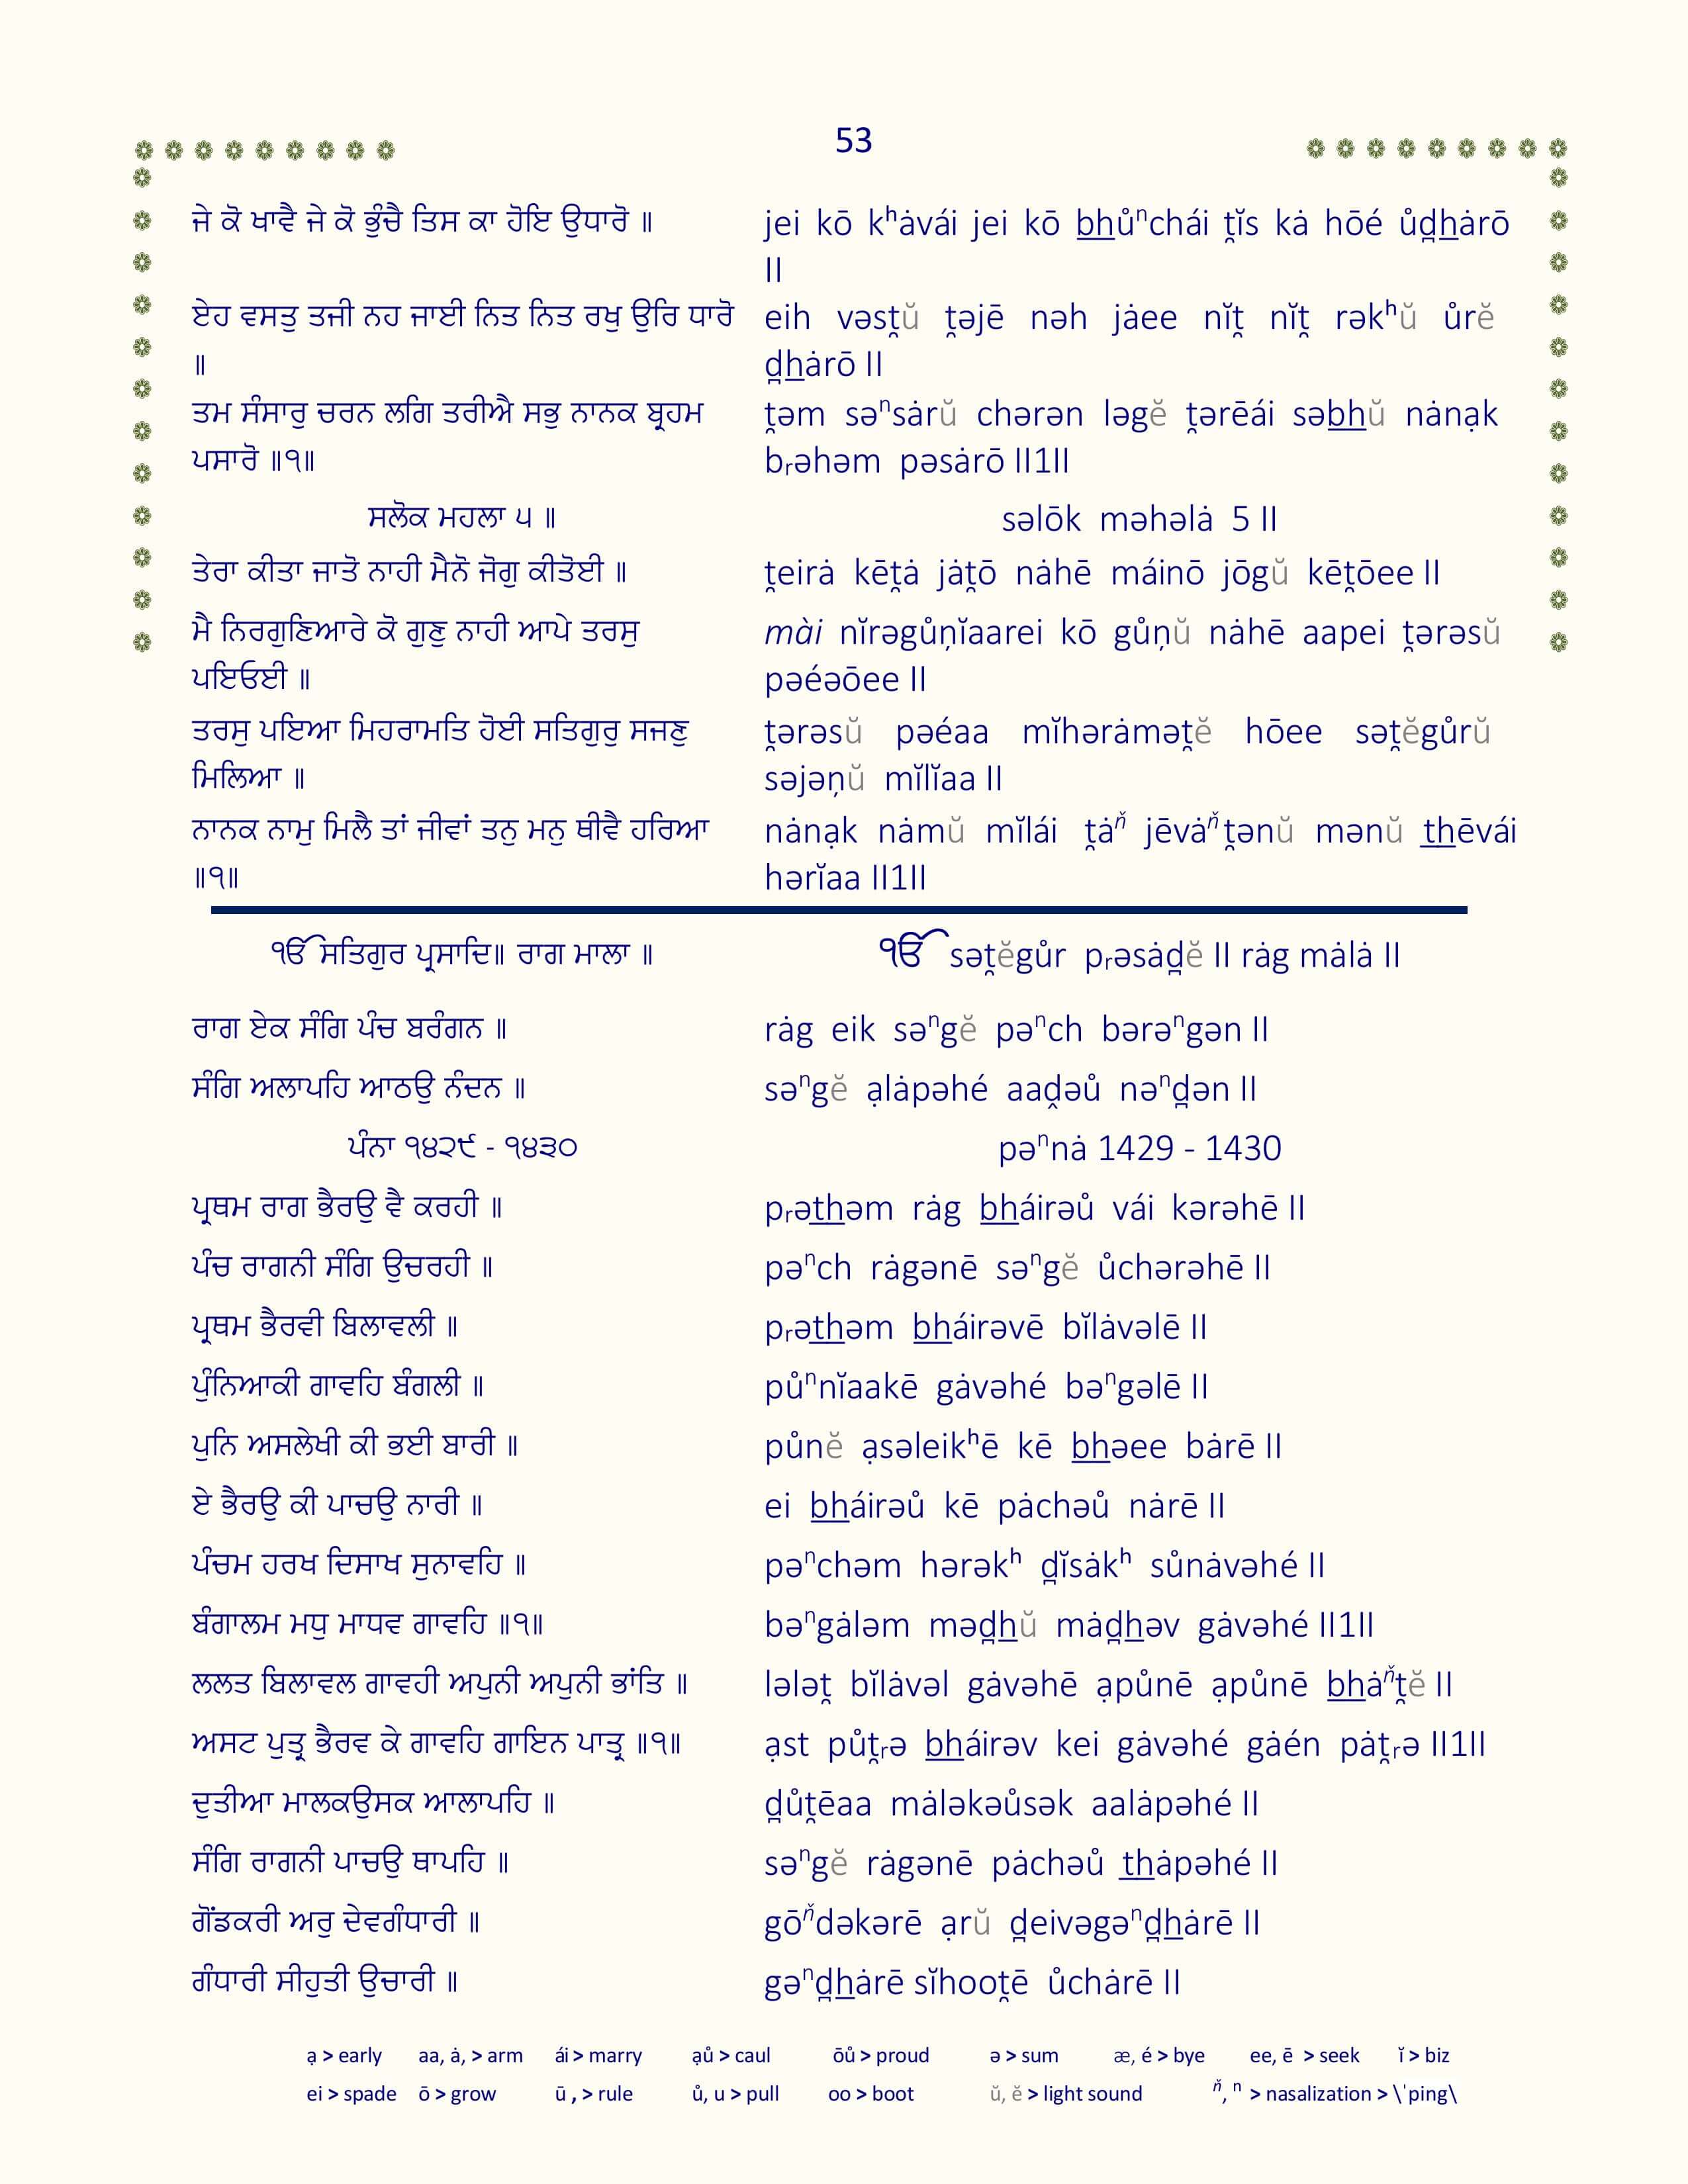 53
ਜੇ ਕੋ ਖਾਵੈ ਜੇ ਕੋ ਭੁੰਚੈ ਤਿਸ ਕਾ ਹੋਇ ਉਧਾਰੋ ॥
jei kō kʰȧvái jei kō bhůⁿchái t̯ĭs kȧ hōé ůd̪hȧrō
II
ਏਹ ਵਸਤੁ ਤਜੀ ਨਹ ਜਾਈ ਨਿਤ ਨਿਤ ਰਖੁ ਉਰਿ ਧਾਰੋ
॥
eih vəst̯ŭ t̯əjē nəh jȧee nĭt̯ nĭt̯ rəkʰŭ ůrĕ
d̪hȧrō II
ਤਮ ਸੰਸਾਰੁ ਚਰਨ ਲਗਿ ਤਰੀਐ ਸਭੁ ਨਾਨਕ ਬ੍ਰਹਮ
ਪਸਾਰੋ ॥੧॥
t̯əm səⁿsȧrŭ chərən ləgĕ t̯ərēái səbhŭ nȧnạk
bᵣəhəm pəsȧrō II1II
ਸਲੋਕ ਮਹਲਾ ੫ ॥
səlōk məhəlȧ 5 II
ਤੇਰਾ ਕੀਤਾ ਜਾਤੋ ਨਾਹੀ ਮੈਨੋ ਜੋਗੁ ਕੀਤੋਈ ॥
t̯eirȧ kēt̯ȧ jȧt̯ō nȧhē máinō jōgŭ kēt̯ōee II
ਮੈ ਨਿਰਗੁਣਿਆਰੇ ਕੋ ਗੁਣੁ ਨਾਹੀ ਆਪੇ ਤਰਸੁ
ਪਇਓਈ ॥
mài nĭrəgůṇĭaarei kō gůṇŭ nȧhē aapei t̯ərəsŭ
pəéəōee II
ਤਰਸੁ ਪਇਆ ਮਿਹਰਾਮਤਿ ਹੋਈ ਸਤਿਗੁਰੁ ਸਜਣੁ
ਮਿਲਿਆ ॥
t̯ərəsŭ pəéaa mĭhərȧmət̯ĕ hōee sət̯ĕgůrŭ
səjəṇŭ mĭlĭaa II
ਨਾਨਕ ਨਾਮੁ ਮਿਲੈ ਤਾਂ ਜੀਵਾਂ ਤਨੁ ਮਨੁ ਥੀਵੈ ਹਰਿਆ
॥੧॥
nȧnạk nȧmŭ mĭlái t̯ȧⁿ̌ jēvȧⁿ̌t̯ənŭ mənŭ thēvái
hərĭaa II1II
ੴ ਸਤਿਗੁਰ ਪ੍ਰਸਾਦਿ॥ ਰਾਗ ਮਾਲਾ ॥
ੴ sət̯ĕgůr pᵣəsȧd̪ĕ II rȧg mȧlȧ II
ਰਾਗ ਏਕ ਸੰਗਿ ਪੰਚ ਬਰੰਗਨ ॥
rȧg eik səⁿgĕ pəⁿch bərəⁿgən II
ਸੰਗਿ ਅਲਾਪਹਿ ਆਠਉ ਨੰਦਨ ॥
səⁿgĕ ạlȧpəhé aaḓəů nəⁿd̪ən II
ਪੰਨਾ ੧੪੨੯ - ੧੪੩੦
pəⁿnȧ 1429 - 1430
ਪ੍ਰਥਮ ਰਾਗ ਭੈਰਉ ਵੈ ਕਰਹੀ ॥
pᵣəthəm rȧg bháirəů vái kərəhē II
ਪੰਚ ਰਾਗਨੀ ਸੰਗਿ ਉਚਰਹੀ ॥
pəⁿch rȧgənē səⁿgĕ ůchərəhē II
ਪ੍ਰਥਮ ਭੈਰਵੀ ਬਿਲਾਵਲੀ ॥
pᵣəthəm bháirəvē bĭlȧvəlē II
ਪੁੰਨਿਆਕੀ ਗਾਵਹਿ ਬੰਗਲੀ ॥
půⁿnĭaakē gȧvəhé bəⁿgəlē II
ਪੁਨਿ ਅਸਲੇਖੀ ਕੀ ਭਈ ਬਾਰੀ ॥
půnĕ ạsəleikʰē kē bhəee bȧrē II
ਏ ਭੈਰਉ ਕੀ ਪਾਚਉ ਨਾਰੀ ॥
ei bháirəů kē pȧchəů nȧrē II
ਪੰਚਮ ਹਰਖ ਦਿਸਾਖ ਸੁਨਾਵਹਿ ॥
pəⁿchəm hərəkʰ d̪ĭsȧkʰ sůnȧvəhé II
ਬੰਗਾਲਮ ਮਧੁ ਮਾਧਵ ਗਾਵਹਿ ॥੧॥
bəⁿgȧləm məd̪hŭ mȧd̪həv gȧvəhé II1II
ਲਲਤ ਬਿਲਾਵਲ ਗਾਵਹੀ ਅਪੁਨੀ ਅਪੁਨੀ ਭਾਂਤਿ ॥
lələt̯ bĭlȧvəl gȧvəhē ạpůnē ạpůnē bhȧⁿ̌t̯ĕ II
ਅਸਟ ਪੁਤ੍ਰ ਭੈਰਵ ਕੇ ਗਾਵਹਿ ਗਾਇਨ ਪਾਤ੍ਰ ॥੧॥
ạst půt̯ᵣə bháirəv kei gȧvəhé gȧén pȧt̯ᵣə II1II
ਦੁਤੀਆ ਮਾਲਕਉਸਕ ਆਲਾਪਹਿ ॥
d̪ůt̯ēaa mȧləkəůsək aalȧpəhé II
ਸੰਗਿ ਰਾਗਨੀ ਪਾਚਉ ਥਾਪਹਿ ॥
səⁿgĕ rȧgənē pȧchəů thȧpəhé II
ਗੋਂਡਕਰੀ ਅਰੁ ਦੇਵਗੰਧਾਰੀ ॥
gōⁿ̌dəkərē ạrŭ d̪eivəgəⁿd̪hȧrē II
ਗੰਧਾਰੀ ਸੀਹੁਤੀ ਉਚਾਰੀ ॥
gəⁿd̪hȧrē sĭhoot̯ē ůchȧrē II
ạ > early aa, ȧ, > arm ái > marry ạů > caul ōů > proud ə > sum æ, é > bye ee, ē > seek ĭ > biz
ei > spade ō > grow ū , > rule ů, u > pull oo > boot ŭ, ĕ > light sound ⁿ̌, ⁿ > nasalization > \ˈping\